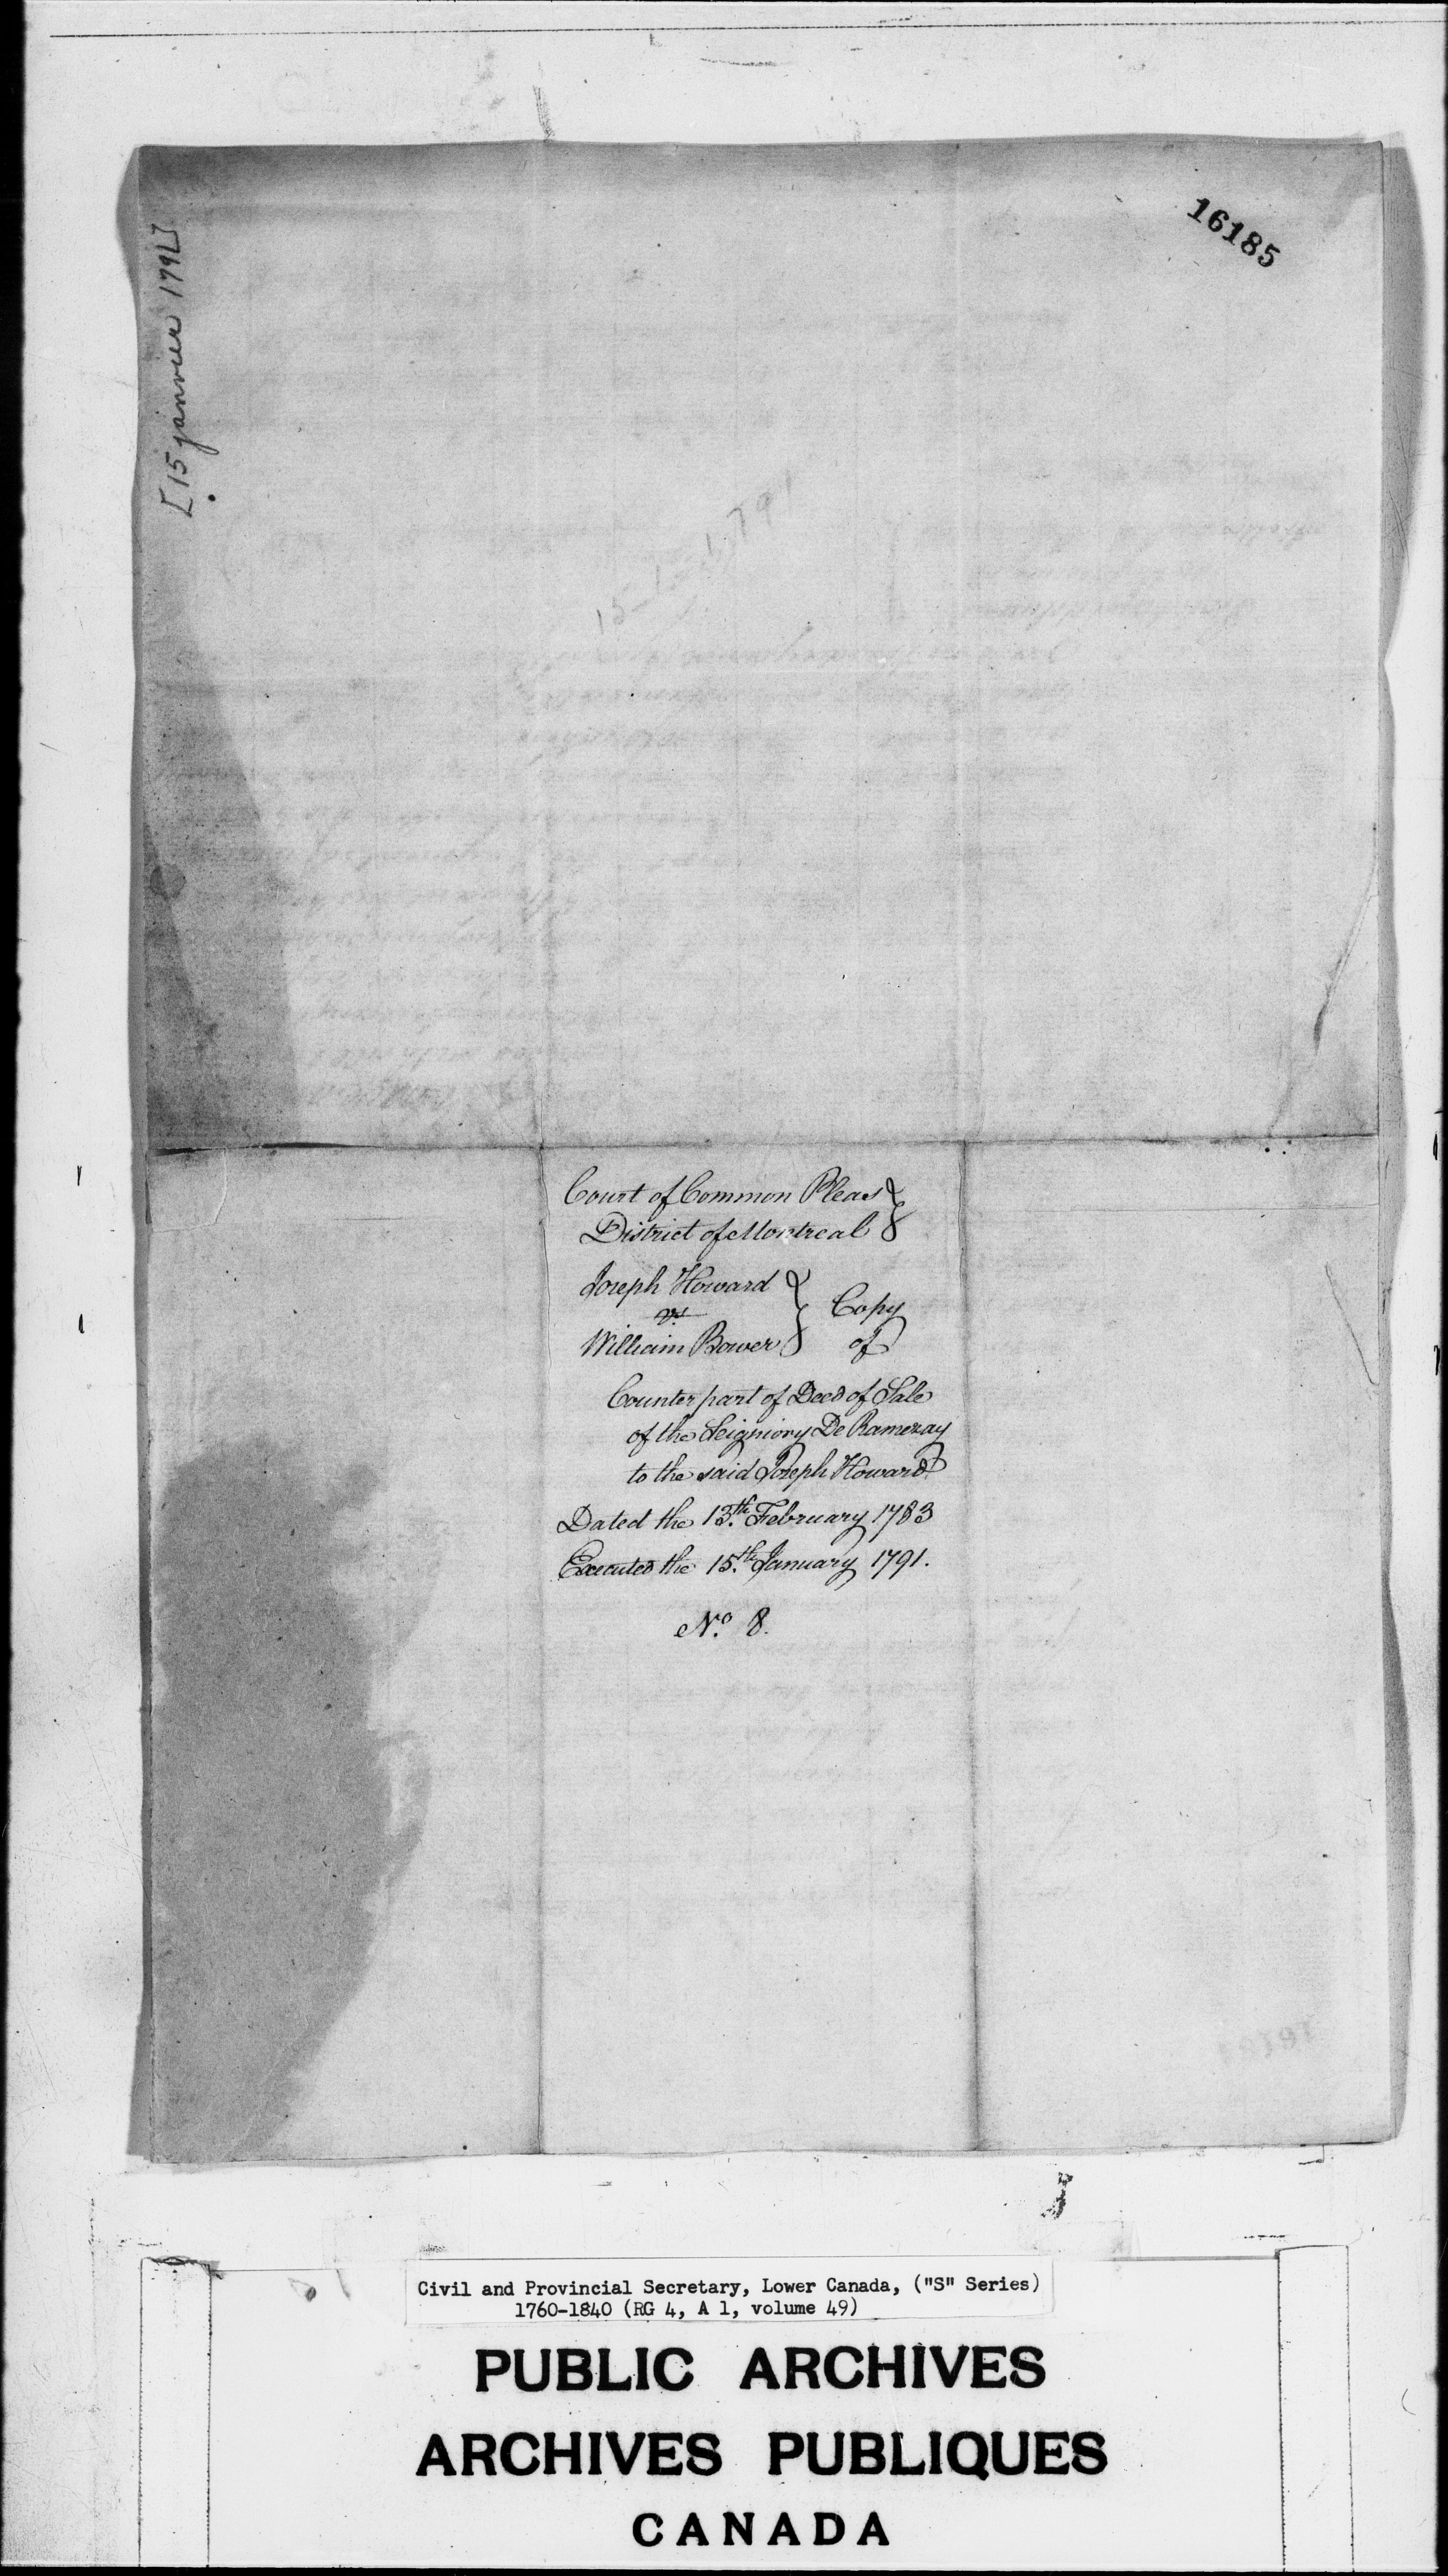 16185
[15 janvier 1791]
15-1-1791
Court of Common Pleas }
District of Montreal }
Joseph Howard } Copy
vs
William Bower } of
Counter part of Deed of Sale
of the Seigniory De Ramezay
to the said Joseph Howard
Dated the 13.th February 1783
Executed the 15.th January 1791.
No. 8.
Civil and Provincial Secretary, Lower Canada, ("S" Series)
1760-1840 (RG 4, A 1, volume 49)
PUBLIC ARCHIVES
ARCHIVES PUBLIQUES
CANADA